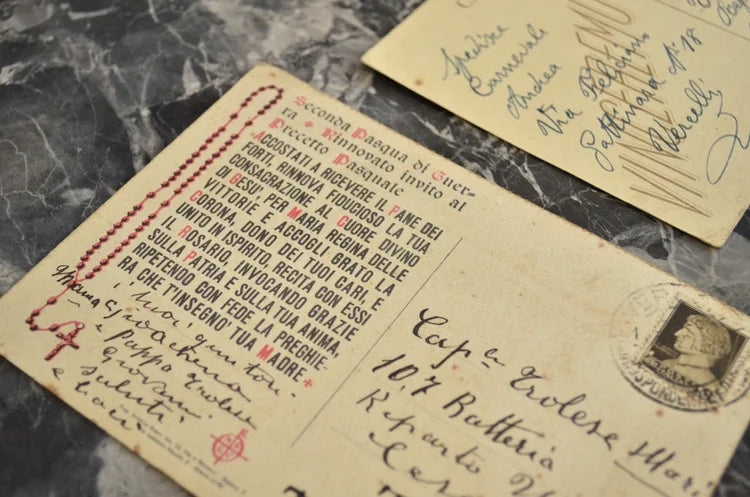 Seconda Pasqua di Guer-
ra + Rinnovato invito al
Precetto Pasquale
ACCOSTATI A RICEVERE IL PANE DEI
FORTI, RINNOVA FIDUCIOSO LA TUA
CONSACRAZIONE AL CUORE DIVINO
DI GESU' PER MARIA REGINA DELLE
VITTORIE E ACCOGLI GRATO LA
CORONA, DONO DEI TUOI CARI, E
UNITO IN ISPIRITO, RECITA CON ESSI
IL ROSARIO, INVOCANDO GRAZIE
SULLA PATRIA E SULLA TUA ANIMA,
RIPETENDO CON FEDE LA PREGHIE-
RA CHE T'INSEGNÒ TUA MADRE +
i tuoi
mama Gioachina
e pappo Trolese
Giovanni
saluti
e baci
Trolese Mari
107 Batteria
Reparto
Spedisce
Carnevale
Andrea
Via Feliciano
Gattinara N° 18
Vercelli
VINCEREMO